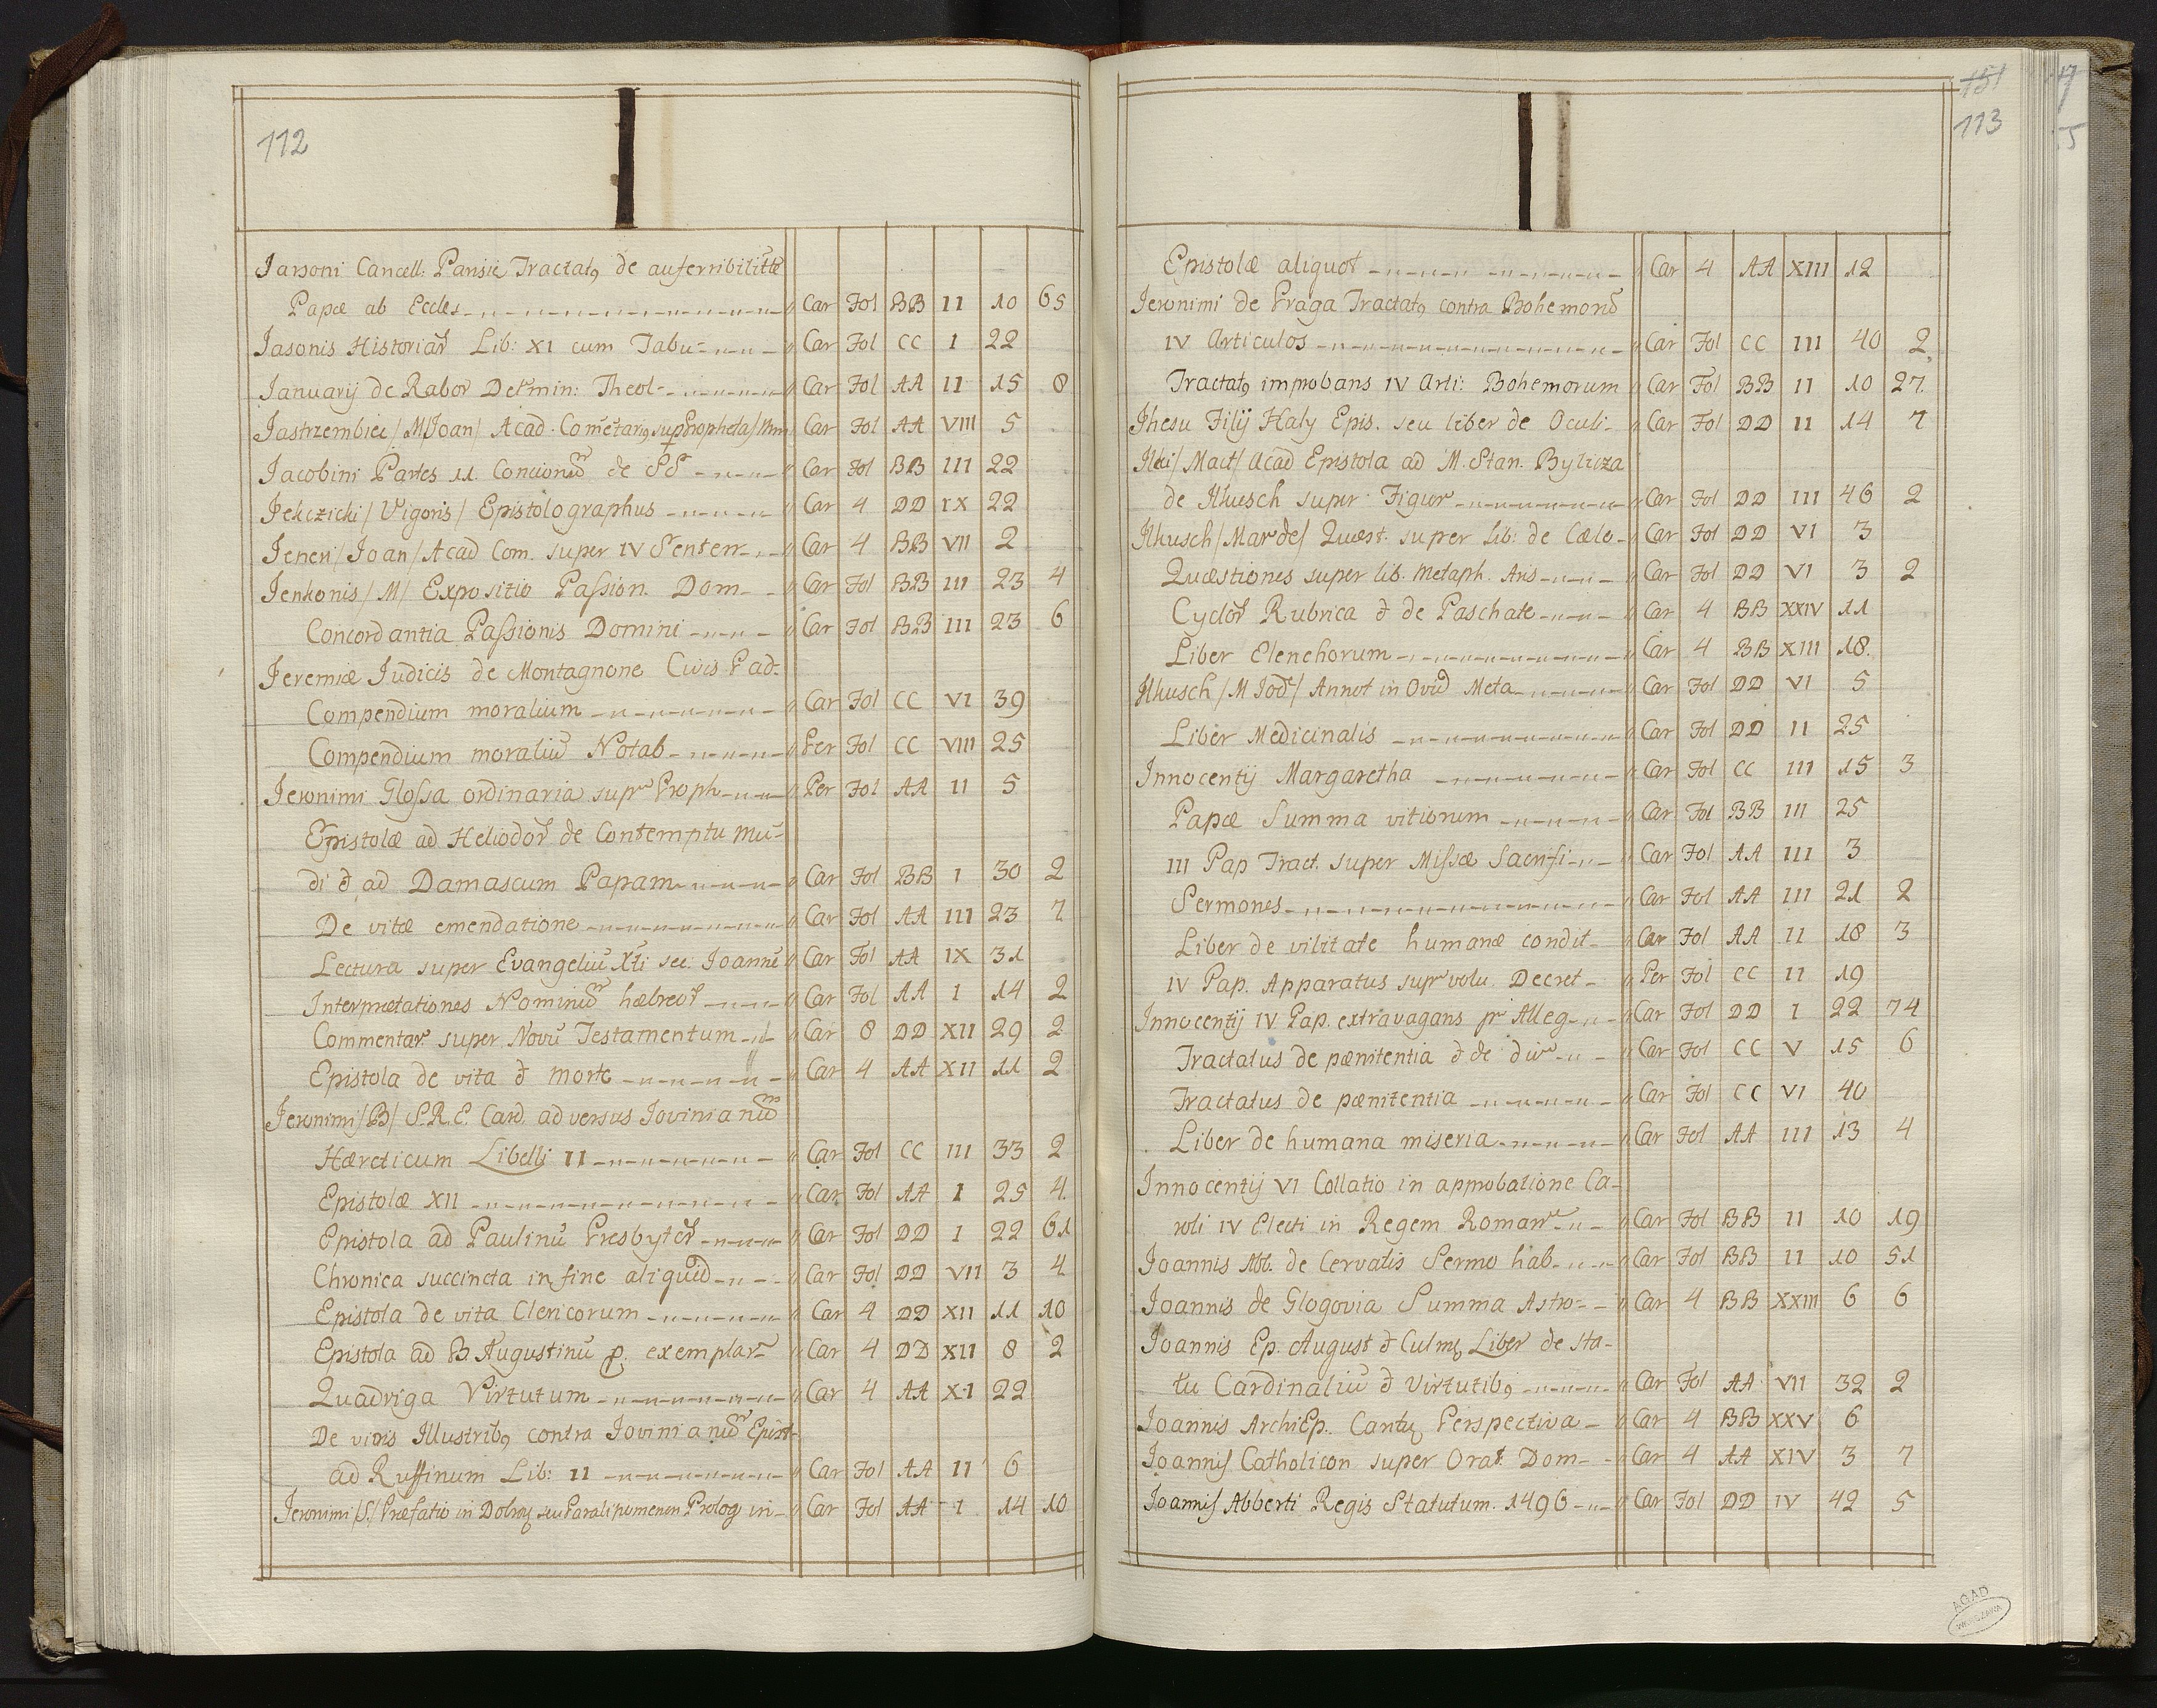 112
Jarsoni Cancell: Parisiē Tractatꝯ de auferribilitte
Papæ ab Eccles Car Fol BB II 10 65
Jasonis Historiar̄ Lib: XI cum Tabu Car Fol CC I 22
Januarij de Rabor Det̄min: Theol Car Fol AA II 15 8
Jastrzembiec / M Joan / Acad. Com̄etarꝯ sup Propheta Car Fol AA VIII 5
Jacobini Partes 11. Concionū de SS Car Fol BB III 22
Jekczicki / Vigoris / Epistolographus Car 4 DD IX 22
Jeneri / Joan / Acad Com. super IV Senten Car 4 BB VII 2
Jenkonis / M / Expositio Passion. Dom Car Fol BB III 23 4
Concordantia Passionis Domini Car Fol BB III 23 6
Jeremiæ Judicis de Montagnone Civis Pad:
Compendium moralium Car Fol CC VI 39
Compendium moraliū Notab Per Fol CC VIII 25
Jeronimi Glossa ordinaria supr Proph Per Fol AA II 5
Epistolæ ad Heliodor̄ de Contemptu Mu-
di & ad Damascum Papam Car Fol BB I 30 2
De vitæ emendatione Car Fol AA III 23 7
Lectura super Evangeliū Xti sec. Joannē Car Fol AA IX 31
Interpretationes Nominū hæbreor̄ Car Fol AA I 14 2
Commentar. super Novū Testamentum Car 8 DD XII 29 2
Epistola de vita & morte Car 4 AA XII 11 2
Jeronimi / B / S.R.E. Card. adversus Jovinianū
Hæreticum Libelli II Car Fol CC III 33 2
Epistolæ XII Car Fol AA I 25 4
Epistola ad Paulinū Presbyter̄ Car Fol DD I 22 61
Chronica succincta in fine aliquid Car Fol DD VII 3 4
Epistola de vita Clericorum Car 4 DD XII 11 10
Epistola ad B Augustinū p. exemplar Car 4 DD XII 8 2
Quadriga Virtutum Car 4 AA XI 22
De viris Illustribꝯ contra Jovinianū Epist-
ad Ruffinum Lib: II Car Fol AA II 6
Jeronimi / S / Præfatio in Dobreꝗ seu Paralipomenon Prolog in Car Fol AA I 14 10
151
113
Epistolæ aliquot Car 4 AA XIII 12
Jeronimi de Praga Tractatꝯ contra Bohemorū
IV Articulos Car Fol CC III 40 2
Tractatꝯ improbans IV Arti: Bohemorum Car Fol BB II 10 27
Jhesu Filij Haly Epis. seu liber de Oculi Car Fol DD II 14 7
Ilki / Mact / Acad Epistola ad M. Stan. Bylicza
de Ilkusch super Figur Car Fol DD III 46 2
Ilkusch / Mar de / Quæst. super Lib: de Cælo Car Fol DD VI 3
Quæstiones super lib. Metaph. Aris Car Fol DD VI 3 2
Cyclor̄ Rubrica & de Paschate Car 4 BB XXIV 11
Liber Elenchorum Car 4 BB XIII 18
Ilkusch / M Jod / Annot in Ovid Meta Car Fol DD VI 5
Liber Medicinalis Car Fol DD II 25
Innocentij Margaretha Car Fol CC III 15 3
Papæ Summa vitiorum Car Fol BB III 25
III Pap Tract. super Missæ Sacrifi Car Fol AA III 3
Sermones Car Fol AA III 21 2
Liber de vilitate humanæ condit Car Fol AA II 18 3
IV Pap. Apparatus supr volu Decret Per Fol CC II 19
Innocentij IV Pap. extravagans pr Alleg Car Fol DD I 22 74
Tractatus de pænitentia & de div Car Fol CC V 15 6
Tractatus de pænitentia Car Fol CC VI 40
Liber de humana miseria Car Fol AA III 13 4
Innocentij VI Collatio in approbatione Ca-
roli IV Electi in Regem Roman Car Fol BB II 10 19
Joannis Abb. de Cervatis Sermo hab Car Fol BB II 10 51
Joannis de Glogovia Summa Astro Car 4 BB XXIII 6 6
Joannis Ep. August & Culmꝗ Liber de sta-
tu Cardinaliū & Virtutibꝯ Car Fol AA VII 32 2
Joannis ArchiEp. Cantꝗ Perspectiva Car 4 BB XXV 6
Joannis Catholicon super Orat. Dom Car 4 AA XIV 3 7
Joannis Abberti Regis Statutum 1496 Car Fol DD IV 42 5
AGAD
WARSZAWA